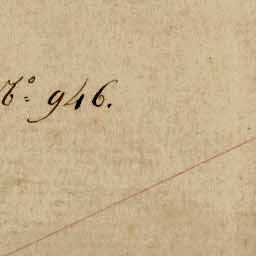 N.º 946.